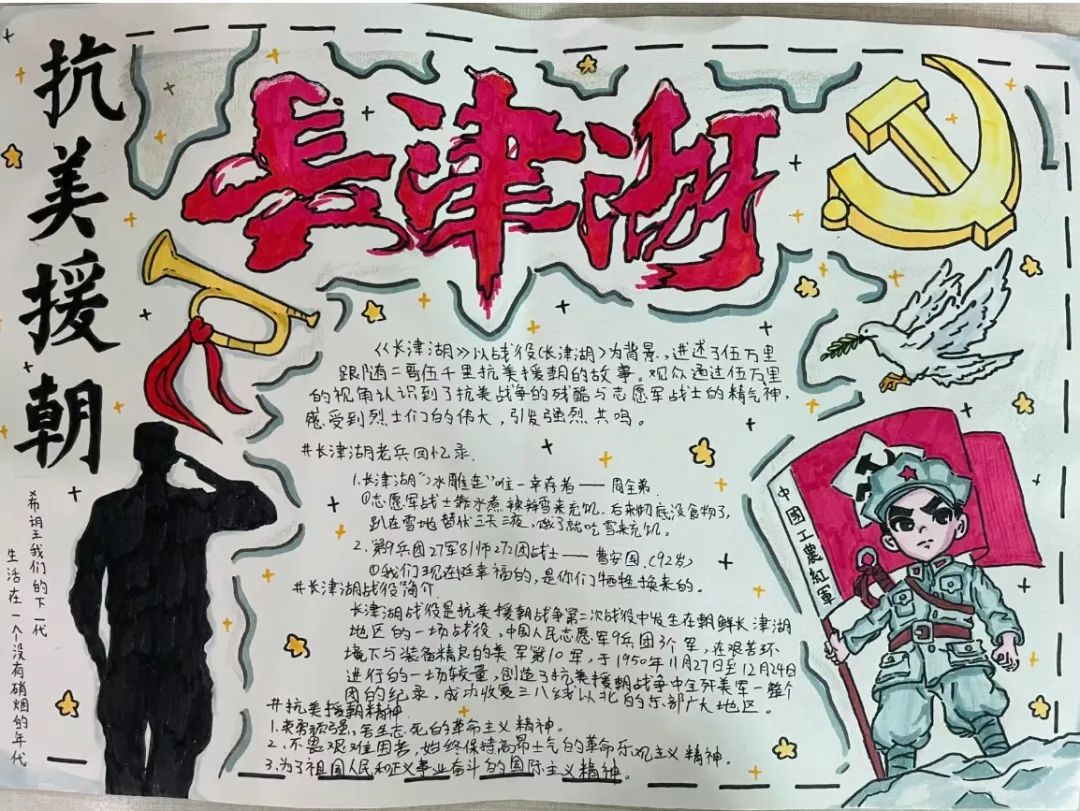 抗美援朝
長津湖
《长津湖》以战役(长津湖)为背景,讲述了伍万里
跟随二哥伍千里抗美援朝的故事。观众通过伍万里
的视角认识到了抗美战争的残酷与志愿军战士的精气神,
感受到烈士们的伟大,引发强烈共鸣。
#长津湖老兵回忆录.
1.长津湖"冰雕连"唯一幸存者——周全弟.
①志愿军战士靠水煮 雪来充饥.后来彻底没食物了,
趴在雪地 三天三夜.饿了就吃雪来充饥.
2.第9兵团27军81师272团战士—— 曹安国.(92岁)
①我们现在挺幸福的,是你们牺牲换来的。
#长津湖战役简介.
长津湖战役是抗美援朝战争第二次战役中发生在朝鲜长津湖
地区的一场战役,中国人民志愿军9兵团3个军,在艰苦环
境下与装备精良的美军第10军,于1950年11月27日至12月24日
进行的一场较量,创造了抗美援朝战争中全歼美军一整个
团的纪录,成功收复三八线以北的东部广大地区。
#抗美援朝精神
1.英勇顽强、舍生忘死的革命主义精神。
2.不畏艰难困苦,始终保持高昂士气的革命乐观主义精神.
3.为了祖国人民和正义事业奋斗的国际主义精神.
希望我们的下一代
生活在一个没有硝烟的年代
中國工農紅軍